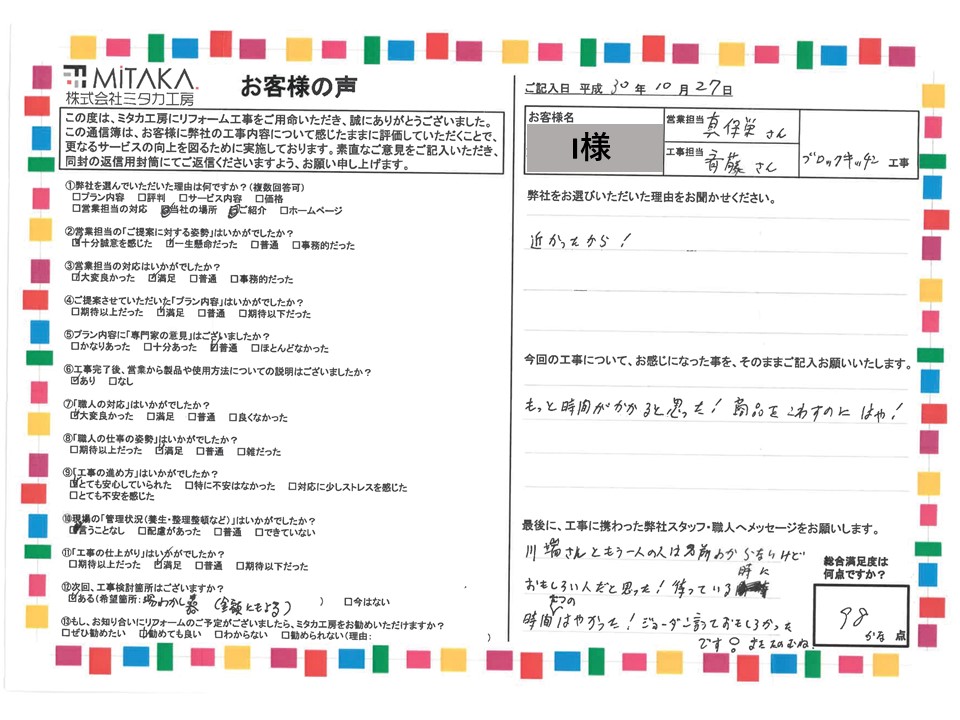 MiTAKA.
株式会社ミタカ工房
お客様の声
この度は、ミタカ工房にリフォーム工事をご用命いただき、誠にありがとうございました。
この通信簿は、お客様に弊社の工事内容について感じたままに評価していただくことで、
更なるサービスの向上を図るために実施しております。素直なご意見をご記入いただき、
同封の返信用封筒にてご返信くださいますよう、お願い申し上げます。
①弊社を選んでいただいた理由は何ですか?(複数回答可)
□プラン内容 □評判 □サービス内容 □価格
□営業担当の対応 ☑当社の場所 ☑ご紹介 □ホームページ
②営業担当の「ご提案に対する姿勢」はいかがでしたか?
☑十分誠意を感じた ☑一生懸命だった □普通 □事務的だった
③営業担当の対応はいかがでしたか?
☑大変良かった ☑満足 □普通 □事務的だった
④ご提案させていただいた「プラン内容」はいかがでしたか?
□期待以上だった ☑満足 □普通 □期待以下だった
⑤プラン内容に「専門家の意見」はございましたか?
□かなりあった □十分あった ☑普通 □ほとんどなかった
⑥工事完了後、営業から製品や使用方法についての説明はございましたか?
☑あり □なし
⑦「職人の対応」はいかがでしたか?
☑大変良かった □満足 □普通 □良くなかった
⑧「職人の仕事の姿勢」はいかがでしたか?
□期待以上だった ☑満足 □普通 □雑だった
⑨「工事の進め方」はいかがでしたか?
☑とても安心していられた □特に不安はなかった □対応に少しストレスを感じた
□とても不安を感じた
⑩現場の「管理状況(養生・整理整頓など)」はいかがでしたか?
☑言うことなし □配慮があった □普通 □できていない
⑪「工事の仕上がり」はいかがでしたか?
□期待以上だった ☑満足 □普通 □期待以下だった
⑫次回、工事検討箇所はございますか?
☑ある(希望箇所:湯わかし器 (金額にもよる) ) □今はない
⑬もし、お知り合いにリフォームのご予定がございましたら、ミタカ工房をお勧めいただけますか?
□ぜひ勧めたい ☑勧めても良い □わからない □勧められない(理由: )
ご記入日 平成 30 年 10 月 27 日
お客様名
I様
営業担当 真保栄 さん
工事担当 斉藤 さん
ブロックキッチン 工事
弊社をお選びいただいた理由をお聞かせください。
近かったから!
今回の工事について、お感じになった事を、そのままご記入お願いいたします。
もっと時間がかかると思った! 商品をこわすのに はや!
最後に、工事に携わった弊社スタッフ・職人へメッセージをお願いします。
川端さんともう一人の人は名前わからないけど
おもしろい人だと思った! 待っている時に
時間たつのはやかった! ジョーダン言っておもしろかった
です。 またたのむね!
総合満足度は
何点ですか?
98
かな 点